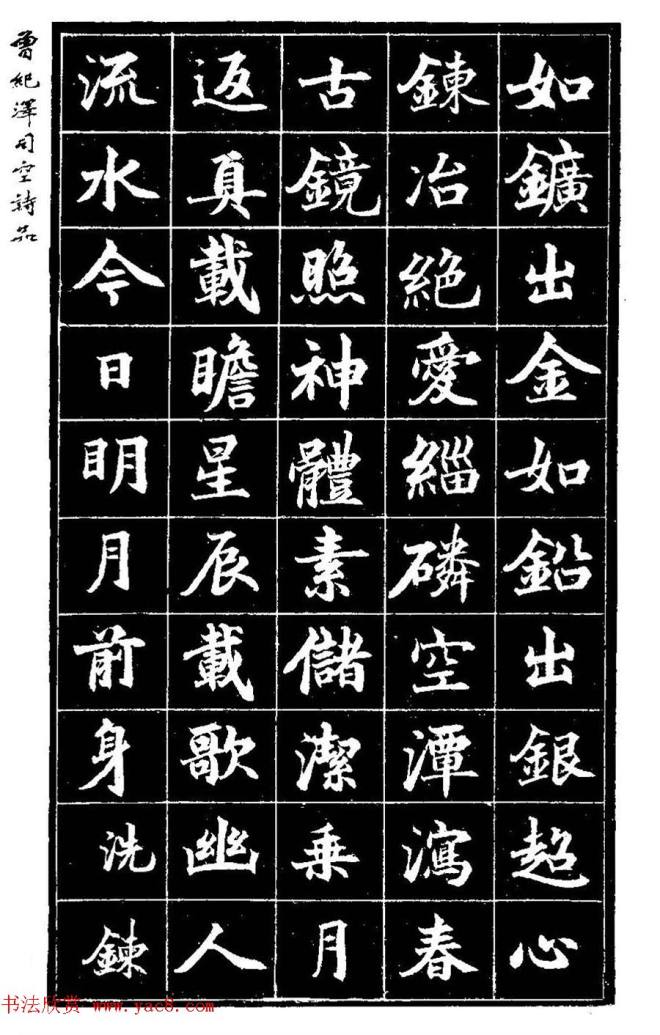 如鑛出金如鉛出銀超心
鍊冶絕愛緇磷空潭瀉春
古鏡照神體素儲潔乗月
返真載瞻星辰載歌幽人
流水今日明月前身洗鍊
曾紀澤司空詩品
书法欣赏 www.yac8.com